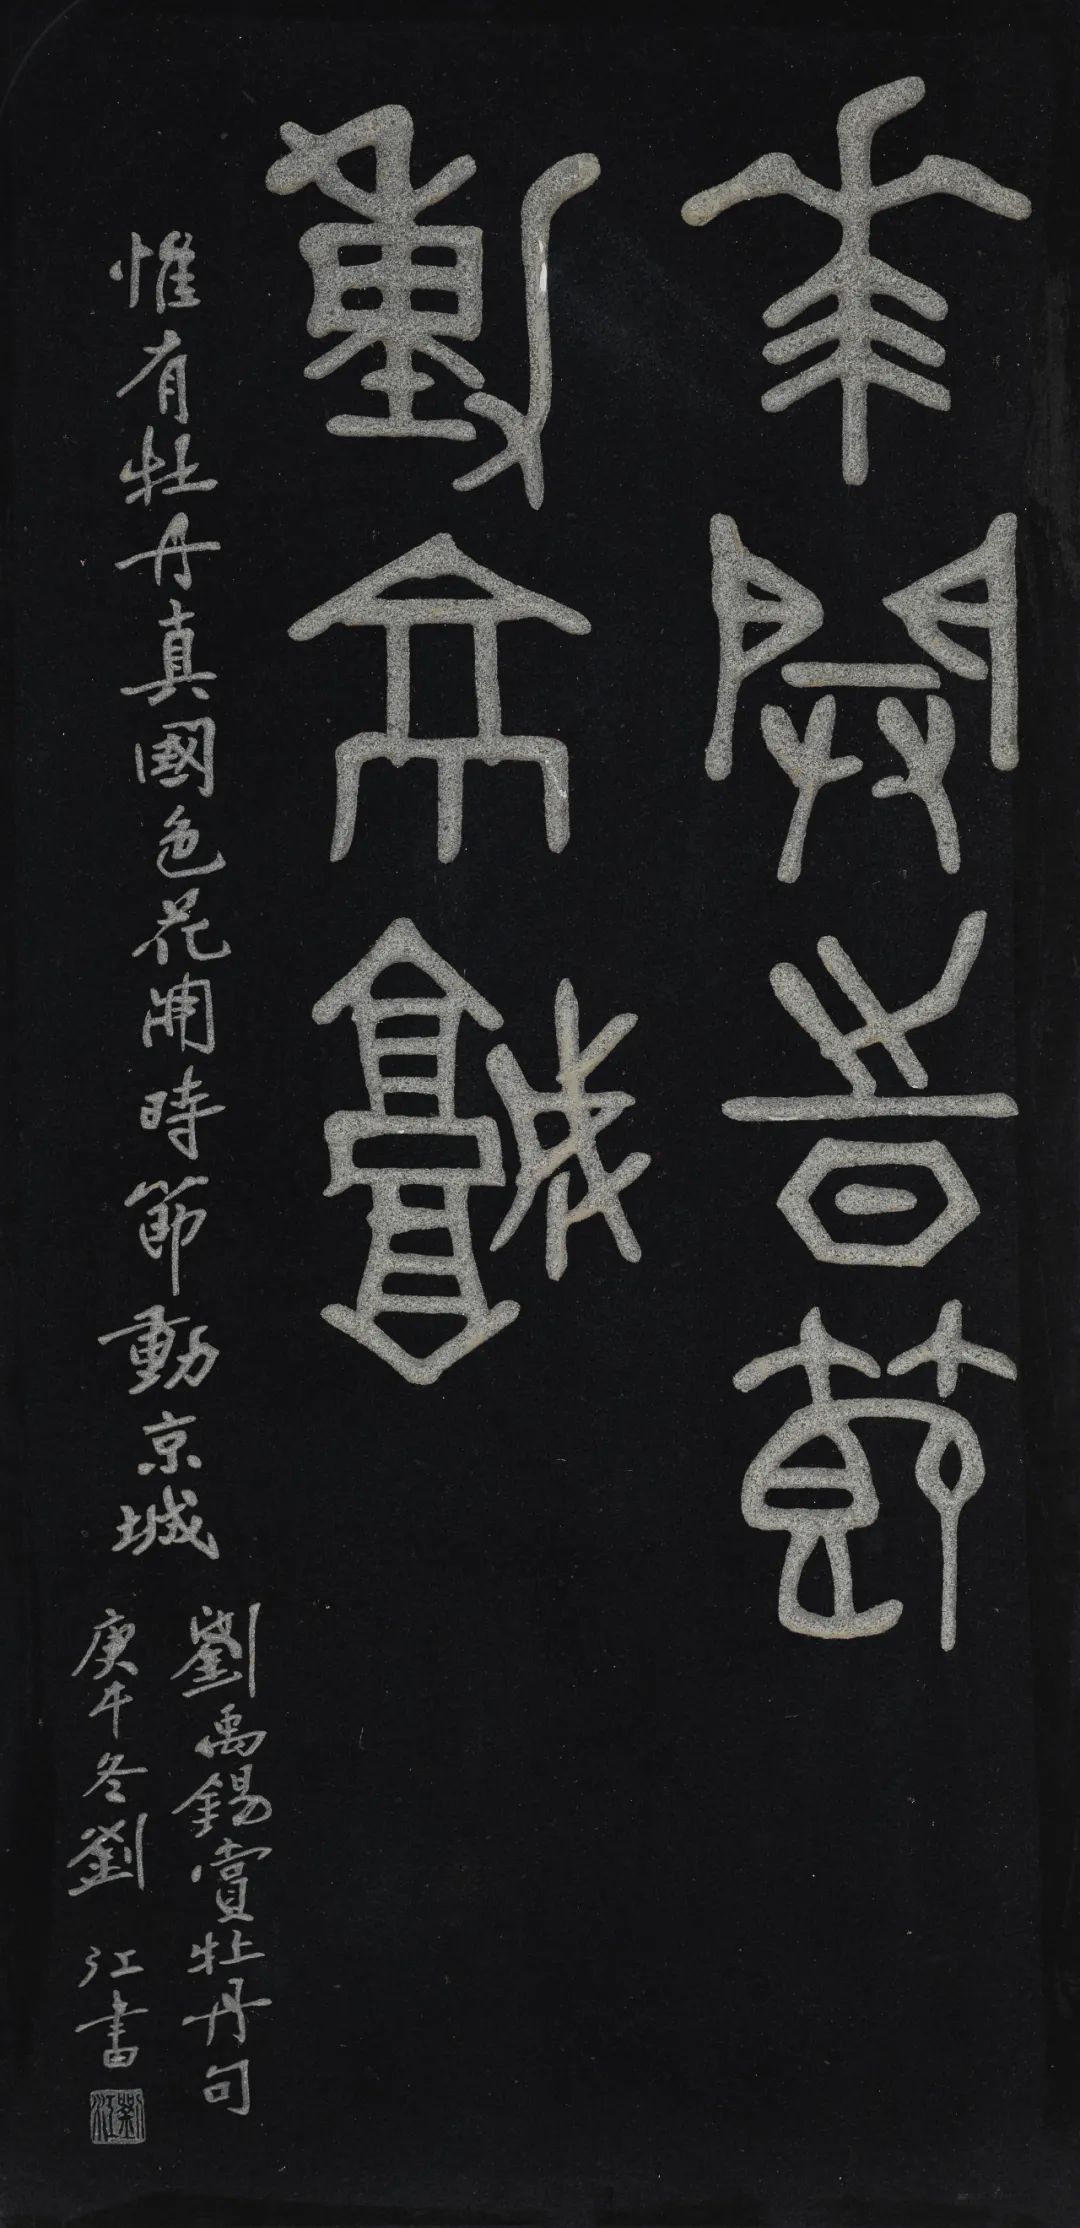 華開時節
動京城
惟有牡丹真國色花開時節動京城
劉禹錫賞牡丹句
庚午冬劉江書
劉江